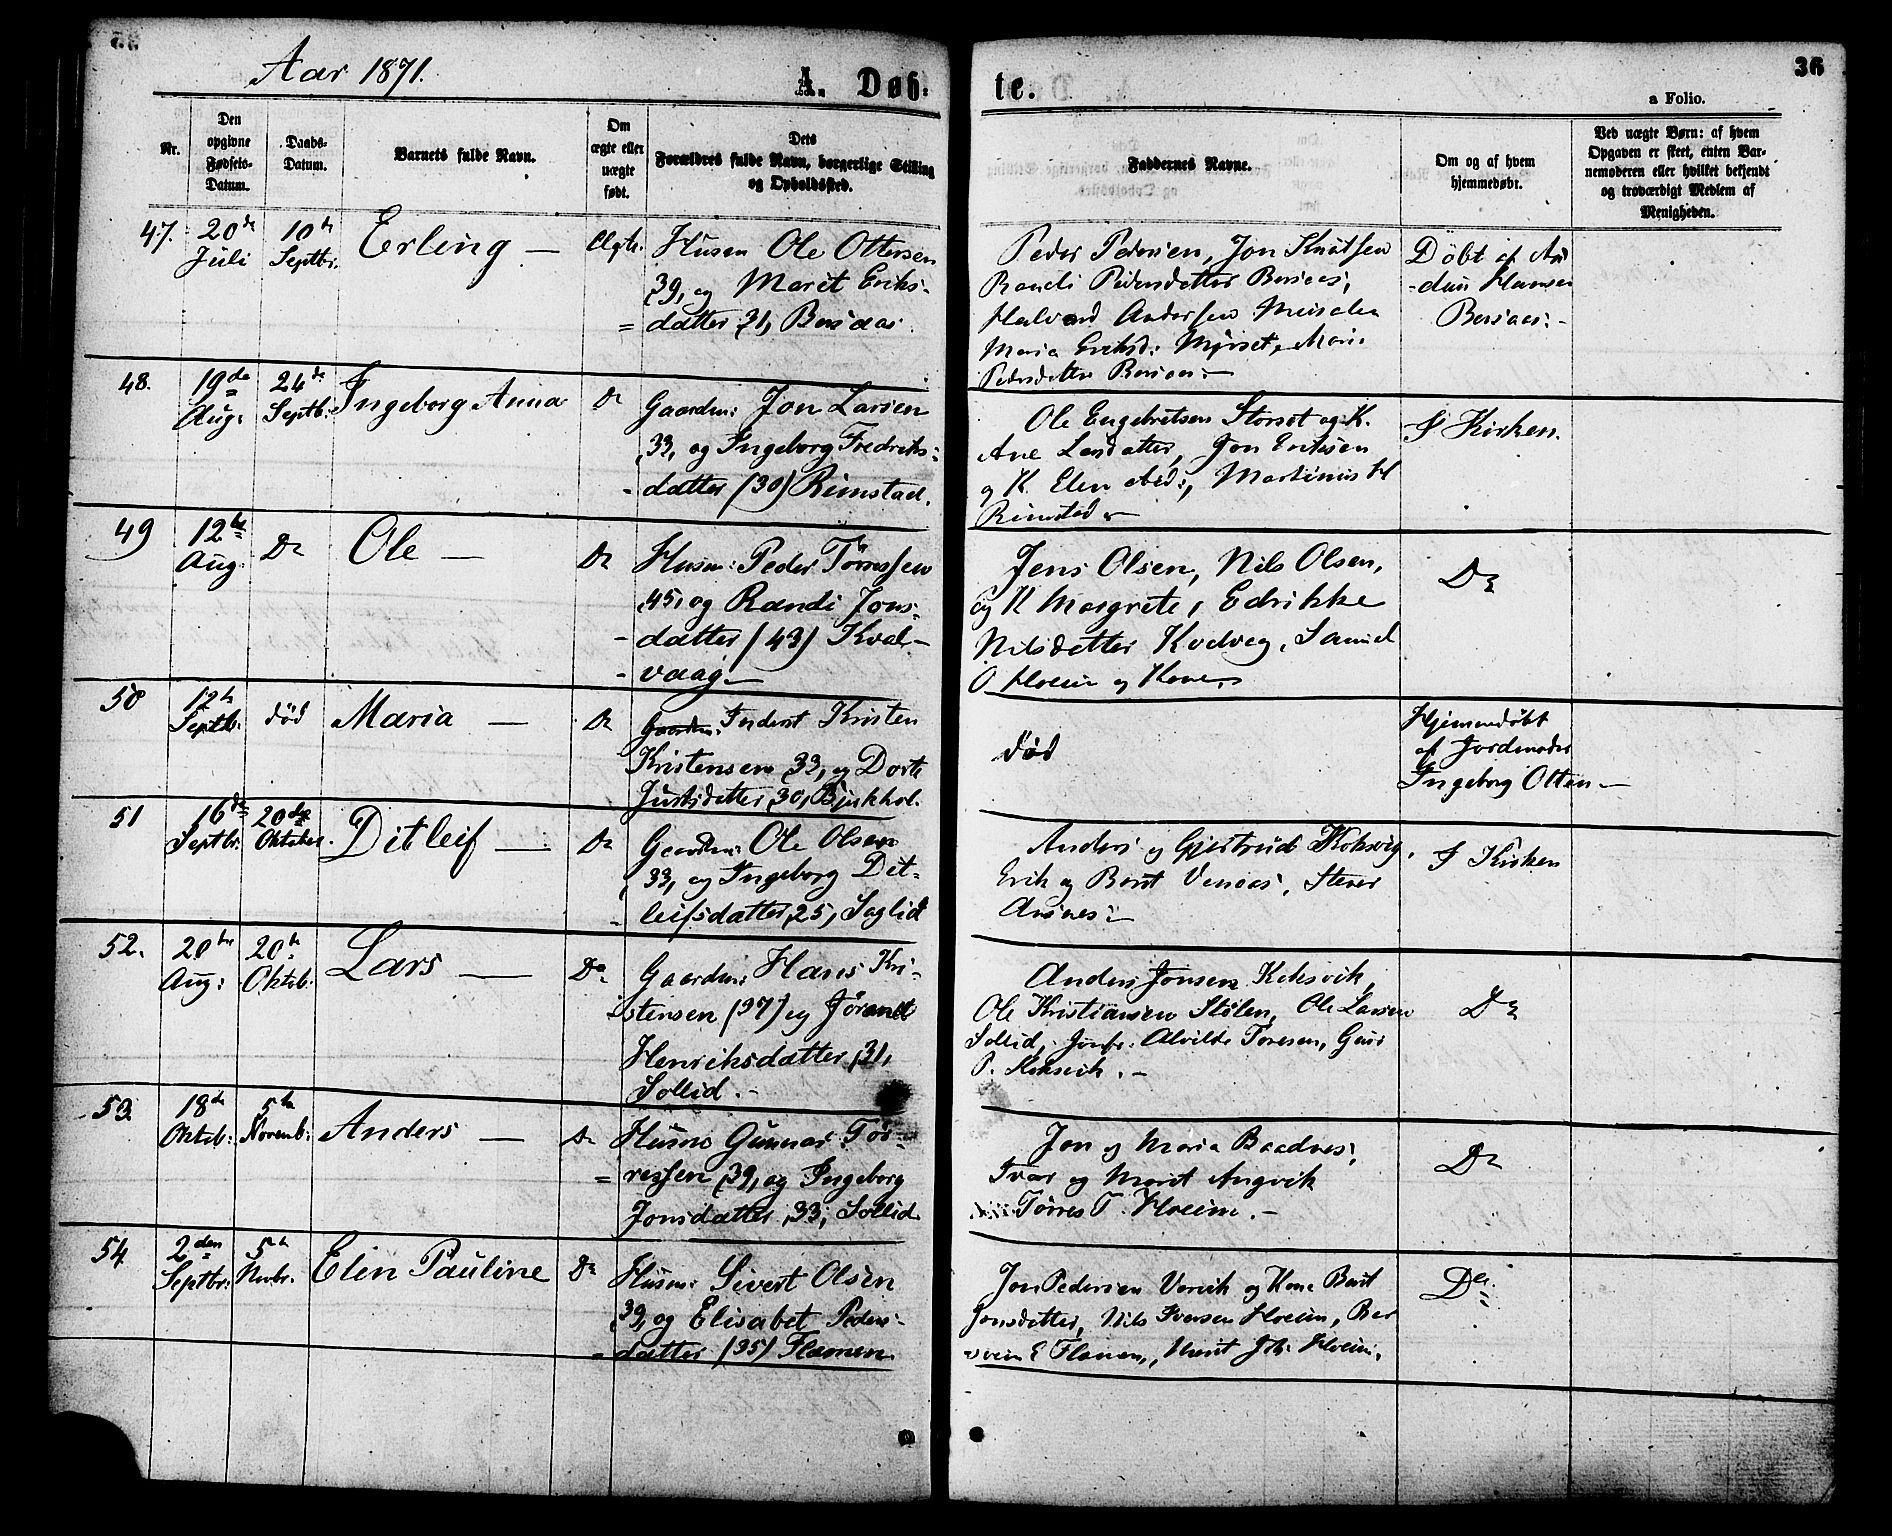 Aar 1871.
A. Døb-
te.
36
a Folio.
Nr.
Den
opgivne
Fødsels-
Datum.
Daabs-
Datum.
Barnets fulde Navn.
Om
ægte eller
uægte
født.
Dets
Forældres fulde Navn, borgerlige Stilling
og Opholdssted.
Faddernes Navne.
Om og af hvem
hjemmedøbt.
Ved uægte Børn: af hvem
Opgaven er skeet, enten Bar-
nemoderen eller hvilket bekjendt
og troværdigt Medlem af
Menigheden.
47.
20de
Juli
10de
Septbr.
Erling —
Husm Ole Ottersen
39, og Marit Eriks-
= datter 31, Bersaas.
Peder Pedersen, Jon Knutsen
Randi Pedersdatter Bersaas,
Halvard Andersen
Maria Eriksd: Myrset, Mari
Pedersdatter Bersaas —
Døbt af An
-dun Hansen
Bersaas: -
48.
19de
Aug:
24de
Septb:
Ingeborg Anna
Do
Gaardm: Jon Larsen
33, og Ingeborg Fredriks-
- datter (30) Rimstad.
Ole Engebretsen Storset og K.
Ane Larsdatter, Jon Eriksen
og K. Elen ibid:, Martinus H
Rimstad -
I Kirken.
49
12te
Aug:
Do
Ole —
Do
Husm: Peder Tørressen
45, og Randi Jons-
- datter (43) Kval-
- vaag —
Jens Olsen, Nils Olsen,
og K Margrete, Edrikke
Nilsdatter Kvalvag,
O. Hoem og Kone,
Do
50
12te
Septb:
død
Maria —
Do
Inderst Kristen
Kristensen 33, og Dorte
30,
død
Hjemmedøbt
af Jordmoder
Ingeborg Ottsn —
51
16de
Septbr:
20de
Oktober.
Ditleif —
Do
Gaardm: Ole Olsen
33, og Ingeborg Dit-
- leifsdatter, 25, Soglid
Anders og Gjertrud Koksvig,
Erik og Berit
I Kirken
52.
20de
Aug:
20de
Oktob.
Lars —
Do
Gaardm: Hans Kri-
-stensen (37) og Jørand
Henriksdatter, 31,
Sollid. -
Anders Jonsen Koksvik,
Ole Kristiansen Stølen, Ole Larsen
Sollid, Jomfr: Alvilde Toresen, Guri
P. Koksvik. -
Do
53.
18de
Oktob:
5te
Novemb:
Anders —
Do
Husm Gunnar Tør-
= ressen 39, og Ingeborg
Jonsdatter, 33, Sollid.
Jon og Maria Baadnes,
Ivar og Marit Angvik
Tørres T. Hoem. -
Do
54.
2den
Septbr:
5te
Novbr.
Elen Pauline
Do
Husm: Sivert Olsen
39, og Elisabet Peders-
- datter (35) Flemmen
Jon Pedersen Vorvik og Kone Berit
Jonsdatter, Nils Iversen Hoem, Ber
E Flemmen, Marit Joh. Hoem.
Do